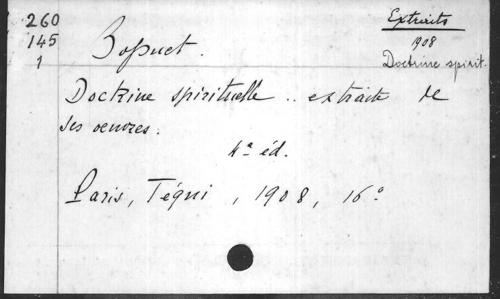 260
145
1
Extraits
1908
Doctrine spirit.
Bossuet.
Doctrine spirituelle .. extraite de
ses oeuvres.
4ᵉ éd.
Paris, Téqui, 1908, 16°